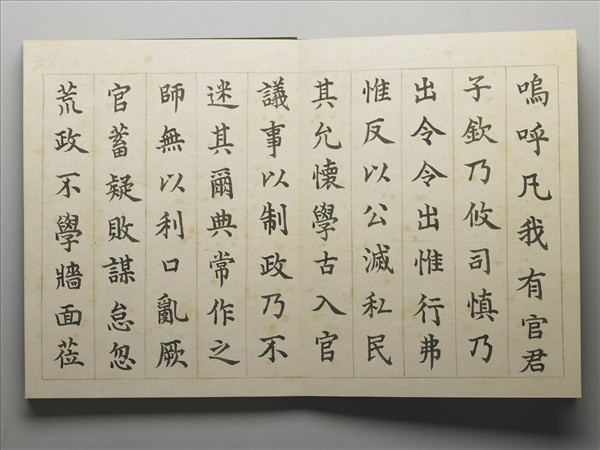 嗚呼凡我有官君
子欽乃攸司慎乃
出令令出惟行弗
惟反以公滅私民
其允懷學古入官
議事以制政乃不
迷其爾典常作之
師無以利口亂厥
官蓄疑敗謀怠忽
荒政不學牆面蒞